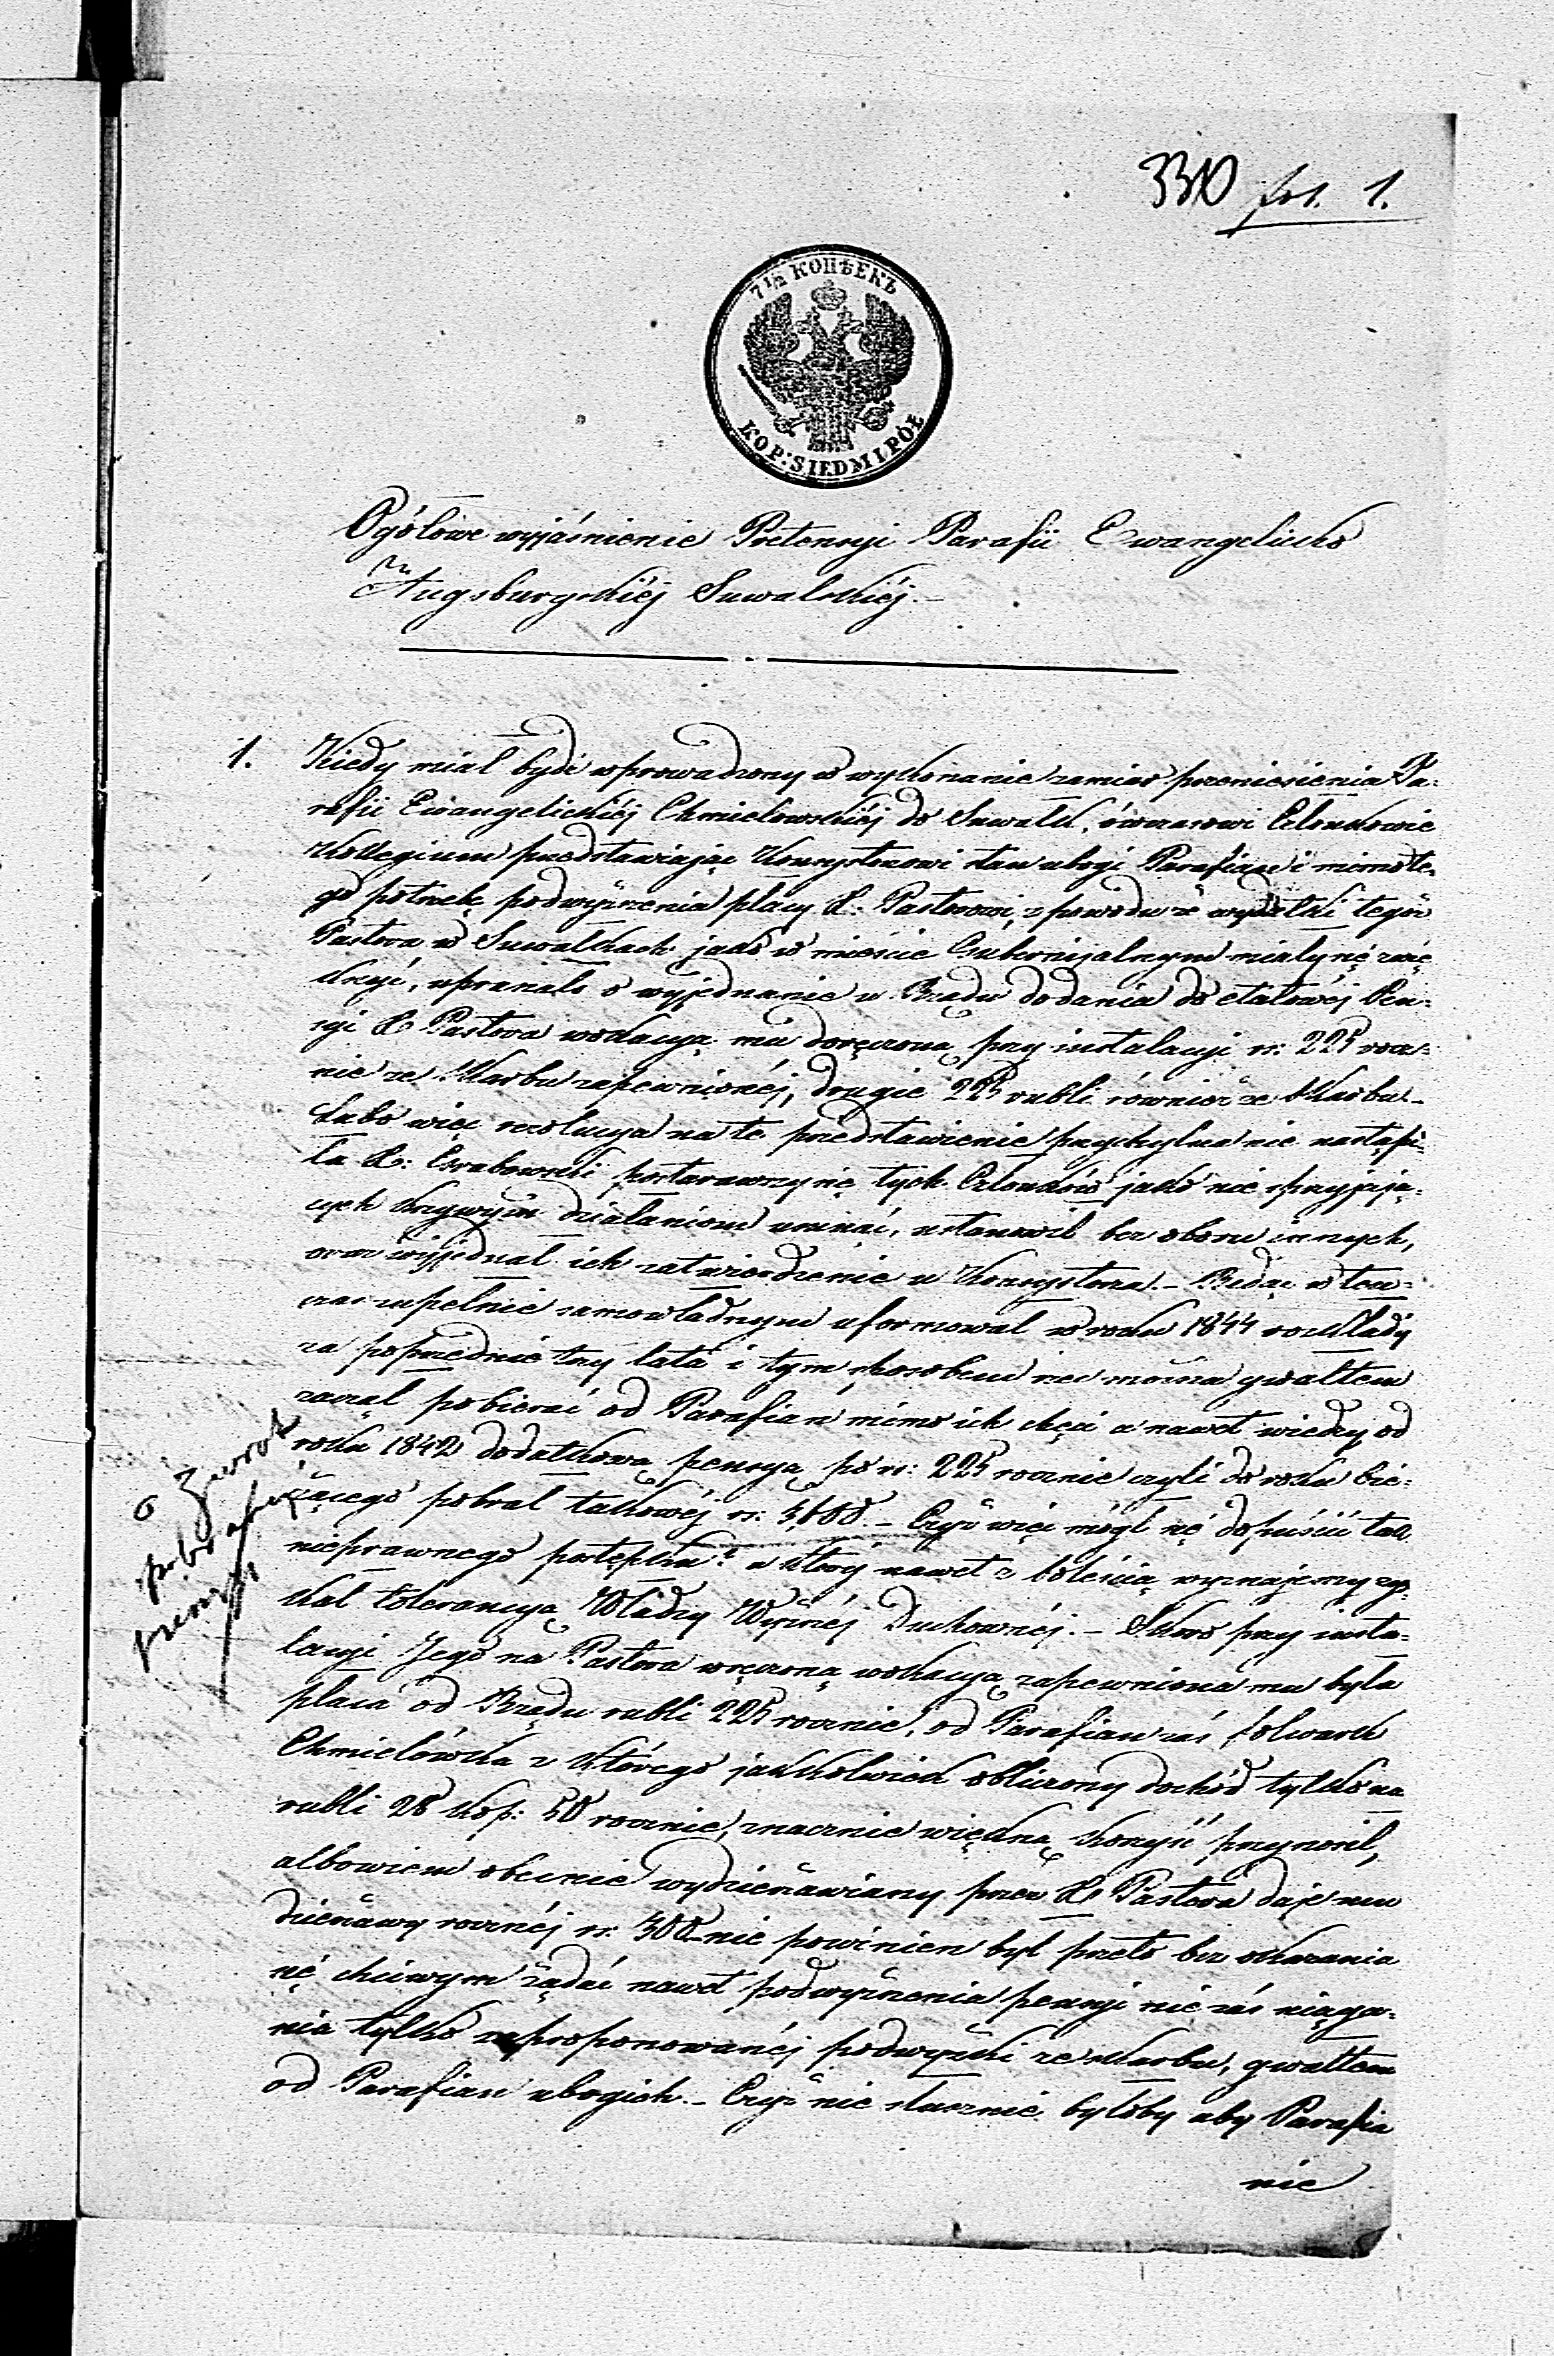 330 fol. 1.
7 1/2 КОПѢЕКЪ
KOP: SIEDM I PÓŁ
Ogólowe wyjaśnienie Pretensyi Parafii Ewangelicko
Augsburgskiéj Suwalskiéj.—
1. Kiedy miał bydź wprowadzony w wykonanie zamiar przeniesienia Pa-
rafii Ewangelickiéj Chmielowskiéj do Suwałk, ówczasowi Członkowie
Kollegium przedstawiając Konsystorzowi stan ubogi Parafian i mimo te-
go potrzebę podwyższenia płacy X. Pastorowi, z powodu że wydatki tegoż
Pastora w Suwałkach jako w mieście Gubernijalnym miały się zwię-
kszyć, upraszało o wyjednanie u Rządu dodania do etatowéj Pen-
syi X. Pastora wokacyą mu doręczoną przy instalacyi rs: 225 rocz-
nie ze Skarbu zapewnionéj, drugie 225 rubli również ze Skarbu.—
Lubo więc rezolucya na te przedstawienie przychylna nie nastąpi-
ła X: Grabowski postarawszy się tych Członków jako nie sprzyjają-
cych krzywym działaniom usunąć, ustanowił bez oboru innych,
oraz wyjednał ich zatwierdzenie u Konsystorza.— Będąc w ten-
czas zupełnie samowładnym uformował w roku 1844 rozkłady
za poprzednie trzy lata i tym sposobem rzec można gwałtem
zaczął pobierać od Parafian mimo ich chęci a nawet wiedzy od
roku 1842 dodatkową pensyą po rs: 225 rocznie czyli do roku bie-
żącego pobrał takowéj rs: 3,600.— Czyż więc mógł się dopuścić tak
nieprawnego postępku? a który nawet z boleścią wyznajemy zys-
kał tolerancyą Władzy Wyższéj Duchownéj.— Skoro przy insta-
lacyi Jego na Pastora wręczoną wokacyą zapewniona mu była
płaca od Rządu rubli 225 rocznie, od Parafian zaś folwark
Chmielówka z którego jakkolwiek obliczony dochód tylko na
rubli 28 kop: 50 rocznie, znacznie większą korzyść przynosił,
albowiem obecnie wydzierżawiany przez X. Pastora daje mu
dzierżawy rocznéj rs. 300 nie powinien był przeto bez okazania
się chciwym żądać nawet podwyższenia pensyi nie zaś ściąga-
nia tylko zaproponowanéj podwyżki ze Skarbu, gwałtem
od Parafian ubogich.— Czyż nie słusznie byłoby aby Parafia
nie
o Zwrot
pobranéj
pensyi